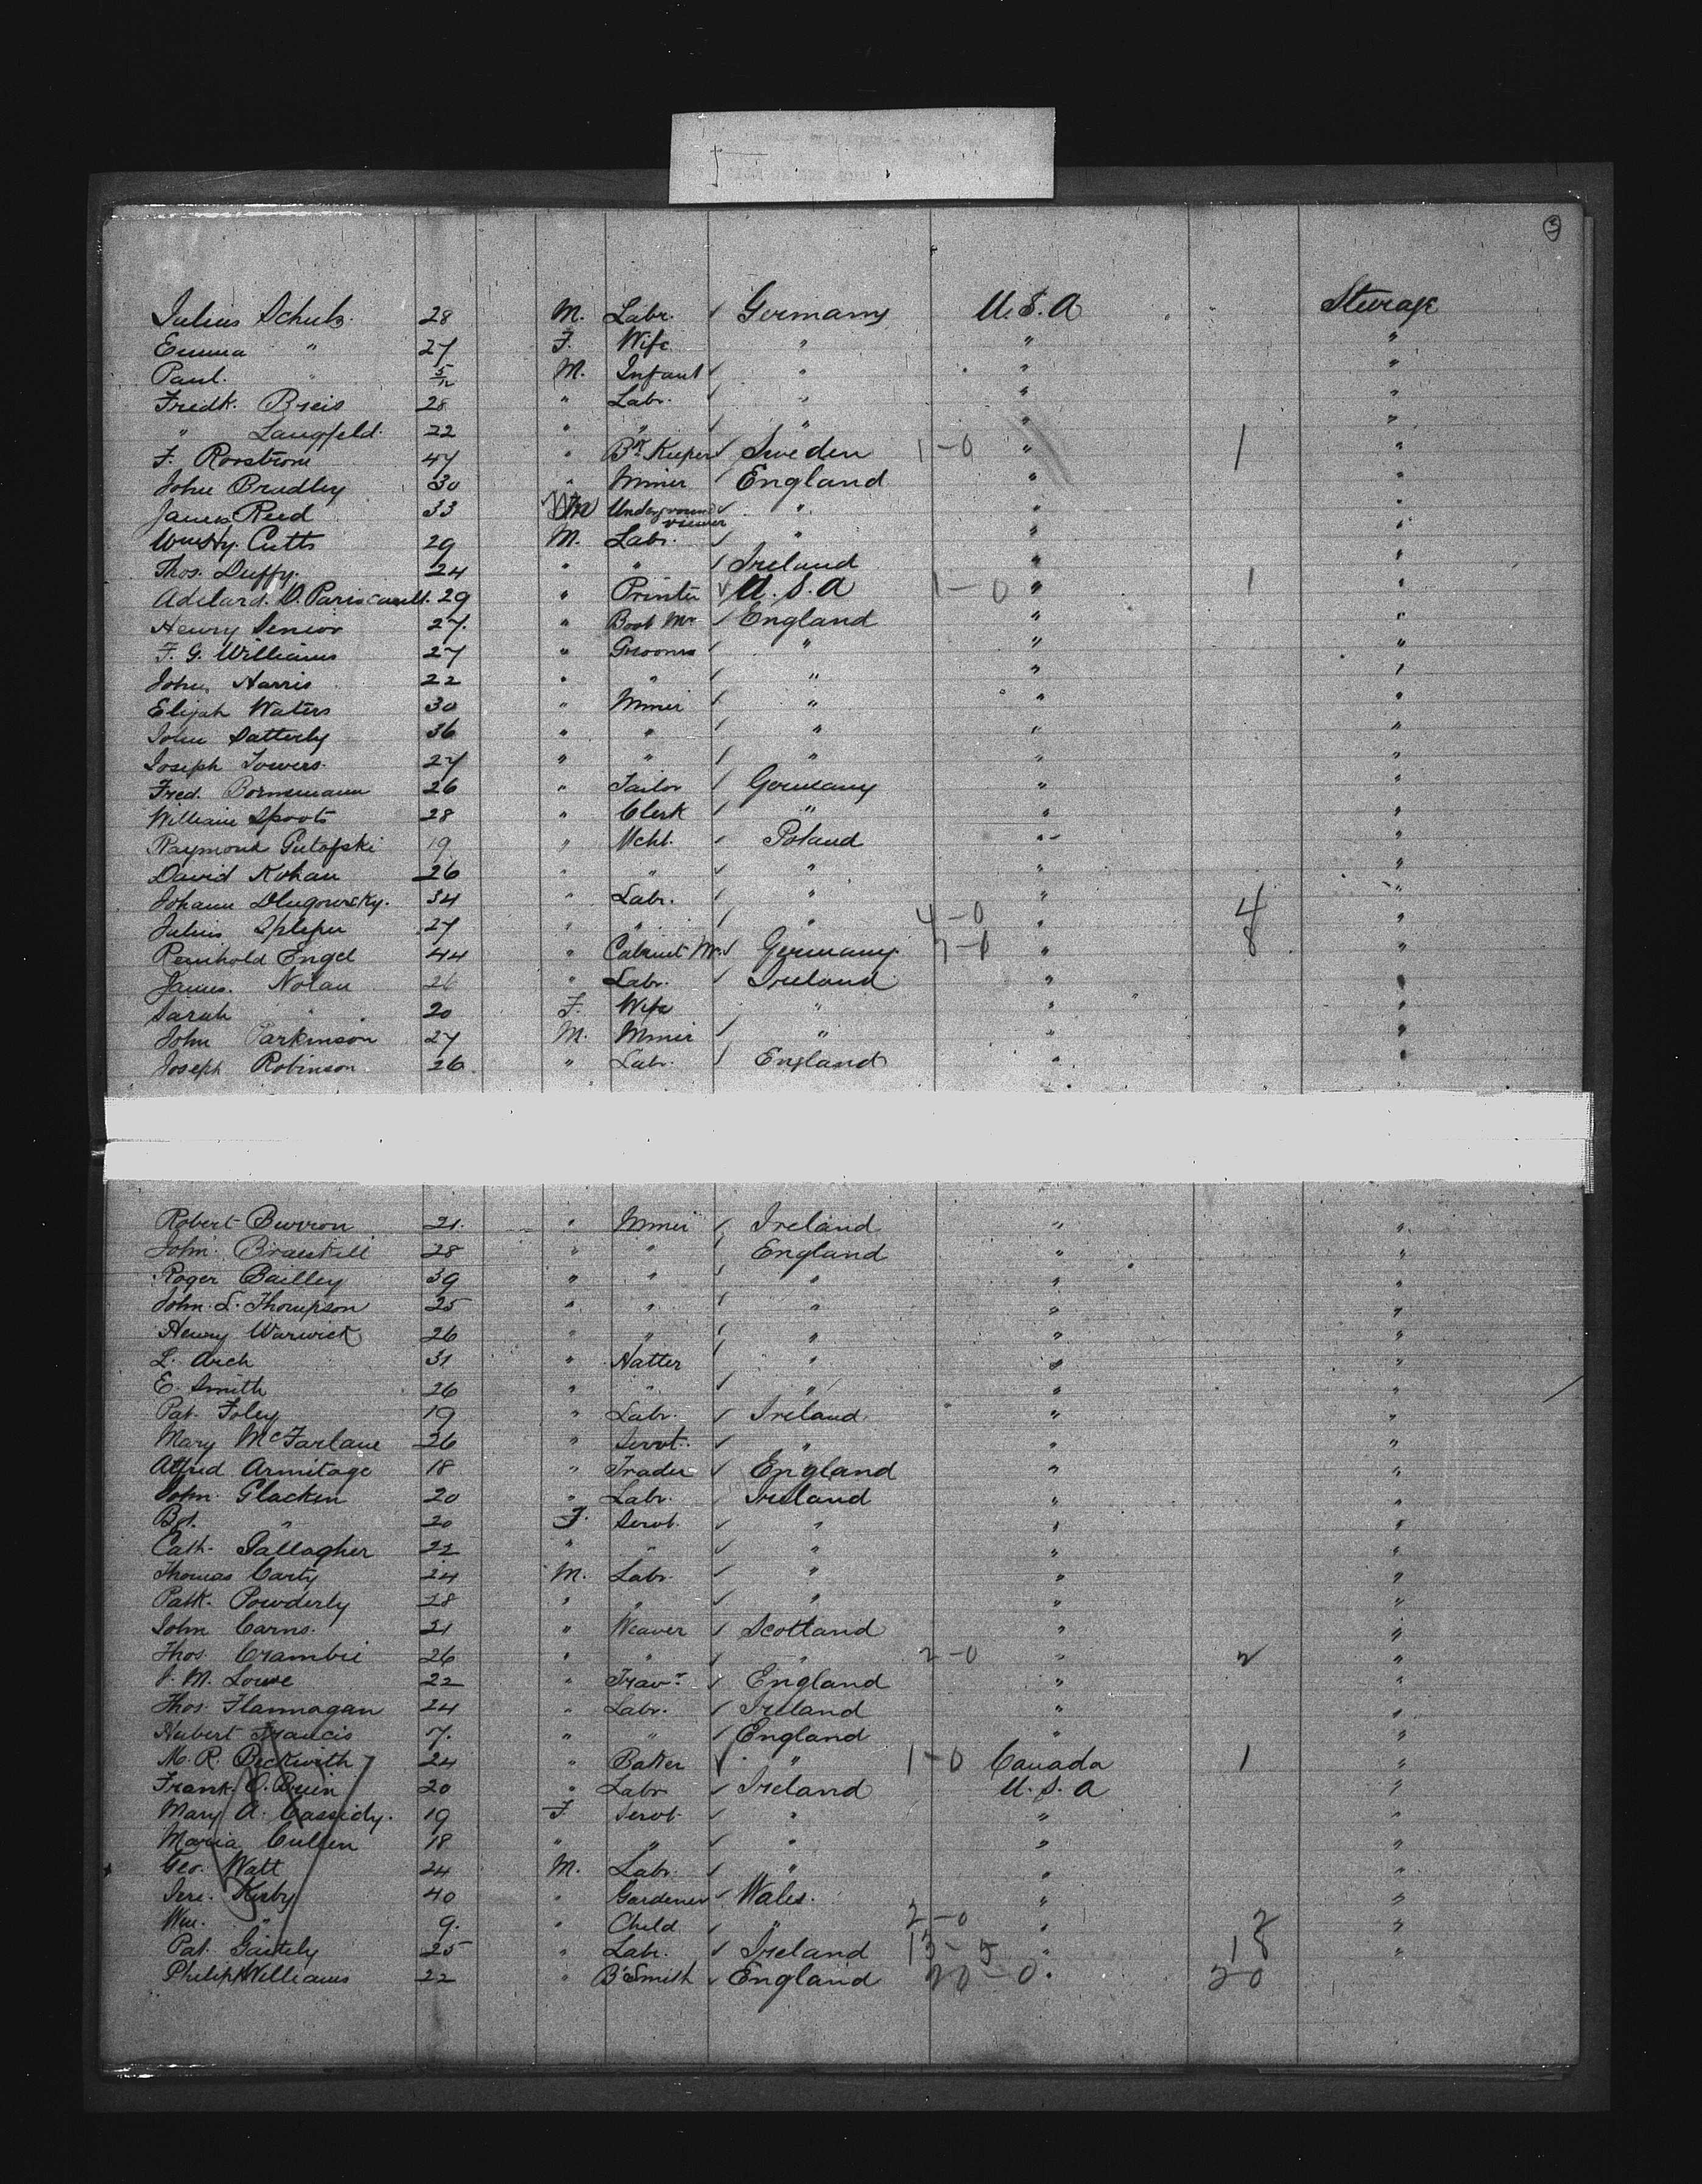 5
Julius Schulz. 28 M. Labr. ✓ Germany U.S.A Steerage
Emma " 27 F. Wife " " "
Paul. " 5/12 M. Infant ✓ " " "
Fredk. Breis 28 " Labr. ✓ " " "
" Langfeld. 22 " " ✓ " " "
F. Rosstrom 47 " Bk Keeper ✓ Sweden 1-0 " 1 "
John Bradley 30 " Miner ✓ England " "
James Reed 33 M Underground viewer ✓ " " "
Wm Hy. Cutts 29 M. Labr. ✓ " " "
Thos. Duffy. 24 " " ✓ Ireland " "
Adelard. D. 29 " Printer ✓ U.S.A 1-0 " 1 "
Henry Senior 27. " Boot Mr ✓ England " "
F. G. Williams 27 " Grooms ✓ " " "
John Harris 22 " " ✓ " " "
Elijah Waters 30 " Miner ✓ " " "
John Satterly 36 " " ✓ " " "
Joseph Towers. 27 " " ✓ " " "
Fred. Bornemann 26 " Tailor ✓ Germany " "
William Spoots 28 " Clerk ✓ " " "
Raymond Gutofski 19 " Mcht. ✓ Poland " "
David Kohan 26 " " ✓ " " "
Johann Dlugowsky. 34 " Labr. ✓ " " "
Julius 27 " " ✓ " 4-0 " 4 "
Reinhold Engel 44 " Cabinet Mr ✓ Germany " 8 "
James. Nolan 26 " Labr. ✓ Ireland " "
Sarah " 20 F. Wife " " "
John Parkinson 27 M. Miner ✓ " " "
Joseph Robinson 26. " Labr. ✓ England " "
Robert Burron 21. " Miner ✓ Ireland " "
John 28 " " ✓ England " "
Roger Bailley 39 " " ✓ " " "
John. S. Thompson 25 " " ✓ " " "
Henry Warwick 26 " " ✓ " " "
L. Arch 31 " Hatter ✓ " " "
E. Smith 26 " " ✓ " " "
Pat. Foley 19 " Labr. ✓ Ireland " "
Mary McFarlane 26 " Servt. ✓ " " "
Alfred Armitage 18 " Trader ✓ England " "
John. Glacken 20 " Labr. ✓ Ireland " "
Bgt. " 20 F. Servt. ✓ " " "
Cath. Gallagher 22 " " ✓ " " "
Thomas Carty 24 M. Labr. ✓ " " "
Patk. Powderly 28 " " ✓ " " "
John Carns. 21 " Weaver ✓ Scotland " "
Thos. Crambie 26 " " ✓ " 2-0 " 2 "
J. M. Lowe 22 " Travr ✓ England " "
Thos. Flannagan 24 " Labr. ✓ Ireland " "
Hubert Francis 7. " " ✓ England " "
M. R. Beckwith 24 " Baker ✓ " 1-0 Canada 1 "
Frank. O. Brien 20 " Labr ✓ Ireland U.S.A "
Mary A. Cassidy. 19 F. Servt ✓ " " "
Maria Cullen 18 " " ✓ " " "
Geo. Watt 24 M. Labr. ✓ " " "
Jere. Kirby 40 " Gardener ✓ Wales. " "
Wm. " 9. " Child ✓ " 2-0 " 2 "
Pat. Gaitely 25 " Labr. ✓ Ireland 13-5 " 18 "
Philip Williams 22 " B'Smith ✓ England 20-0 " 20